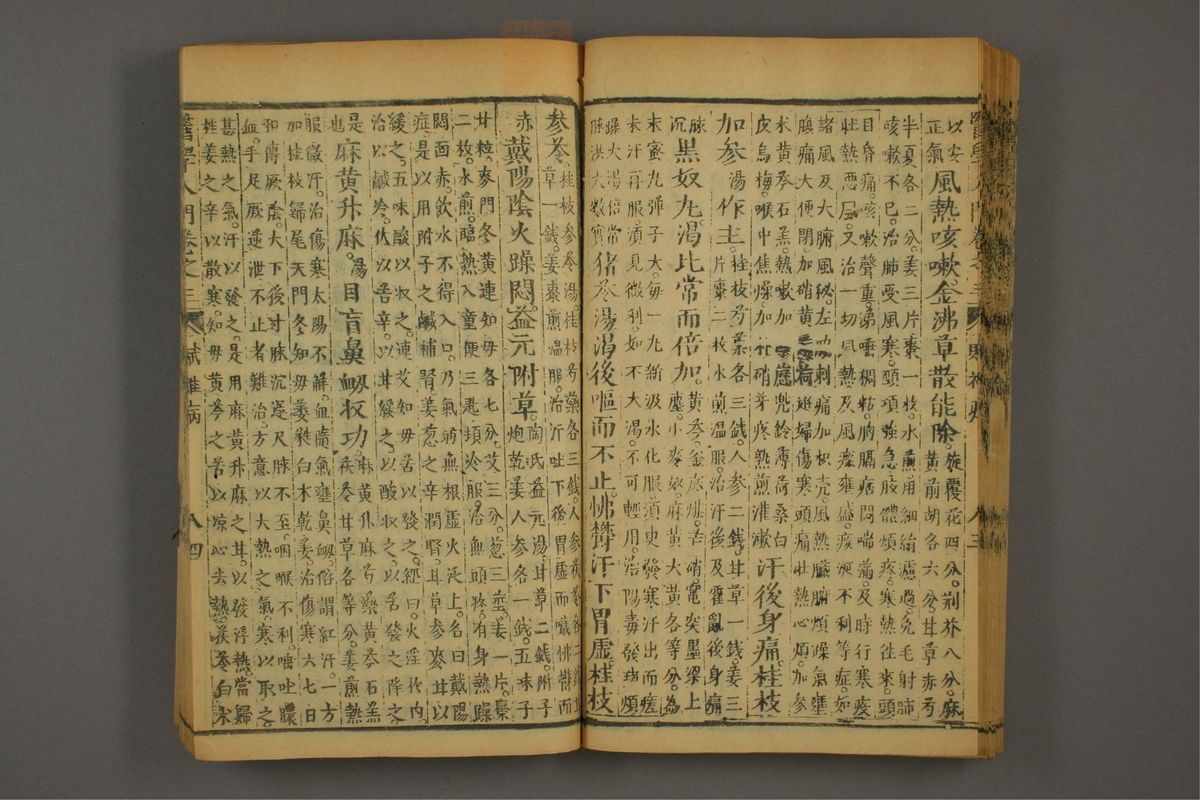 以安正氣。風熱咳嗽。金沸草散能除。旋覆花四分。荊芥八分。麻黃前胡各六分甘草赤芍
半夏各二分。姜三片棗一枚。水煎用細絹慮過。免毛射肺
咳嗽不已。治肺受風寒。頭項強急。肢體煩疼。寒熱徃來。頭
目昏痛。咳嗽聲重。涕唾稠粘。胸膈痞悶喘滿。及時行寒疫
壯熱惡風。又治一切風熱及風痰壅盛。痰涎不利等症。如
諸風及大腑風秘。左脇刺痛加枳壳。風熱臟腑煩躁氣壅
膈痛大便閉。加硝黃。姙婦傷寒頭痛壯熱心煩。加參
朮黃芩石羔。熱嗽加兜鈴薄荷桑白
皮烏梅。喉中焦燥。加朴硝。芽疼熱煎漼漱。汗後身痛。桂枝
加參湯作主。桂枝芍藥各三錢。人參二錢。甘草一錢。姜三
片棗二枚水煎溫服。治汗後及霍亂後身痛
脉沉。黑奴丸。渴比常而倍加。黃芩釜底煤。舌硝竈突墨。梁上
塵。小麥奴。麻黃大黃各等分。為
末。蜜丸彈子大。每一丸新汲水化服。須臾發寒。汗出而瘥
未汗再服。須見微利。如不大渴。不可輕用。治陽毒發斑煩
躁大渴倍常脉洪大數實。猪苓湯。渴後嘔而不止。怫欝汗下胃虛。桂枝
參苓。桂枝參苓湯。桂枝芍藥各三錢。人參茯苓各二錢甘
草一錢。姜棗煎溫服。治汗吐下後胃虛而噦怫欝而
赤。戴陽陰火躁悶。益元附草。陶氏益元湯。甘草二錢。附子
炮乾姜人參各一錢。五味子
廿粒。麥門冬黃連知母各七分。艾三分。葱三莖。姜一片。棗
二枚。水煎。臨熱入童便三匙頓冷服。治無頭疼。有身熱躁
悶面赤。飲水不得入口。乃氣弱無根虛火泛上。名曰戴陽
症。是以用附子之鹹補腎。姜葱之辛潤腎。甘草參麥甘以
緩之。五味酸以收之。連艾知母苦以發之。經曰。火淫於內
治以鹹冷。佐以苦辛。以甘緩之。以酸收之。以苦發之降之
是也。麻黃升麻湯。目盲鼻衂收功。麻黃升麻芍藥黃芩石羔
茯苓甘草各等分。姜煎熱
服微汗。治傷寒太陽不解。血隨氣壅鼻衂。俗謂紅汗。一方
加桂枝歸尾天門冬知母葳蕤白朮乾姜。治傷寒六七日
和傳厥陰。大下後寸脉沉遲。尺脉不至。咽喉不利。嘔吐膿
血。手足厥逆。泄不止者難治。方意以大熱之氣。寒以取之
甚熱之氣。汗以發之。是用麻黃升麻之甘。以發浮熱。當歸
桂姜之辛以散寒。知母黃芩之苦以凉心去熱。茯苓白朮
醫學入門卷之三
賦雜病
八四